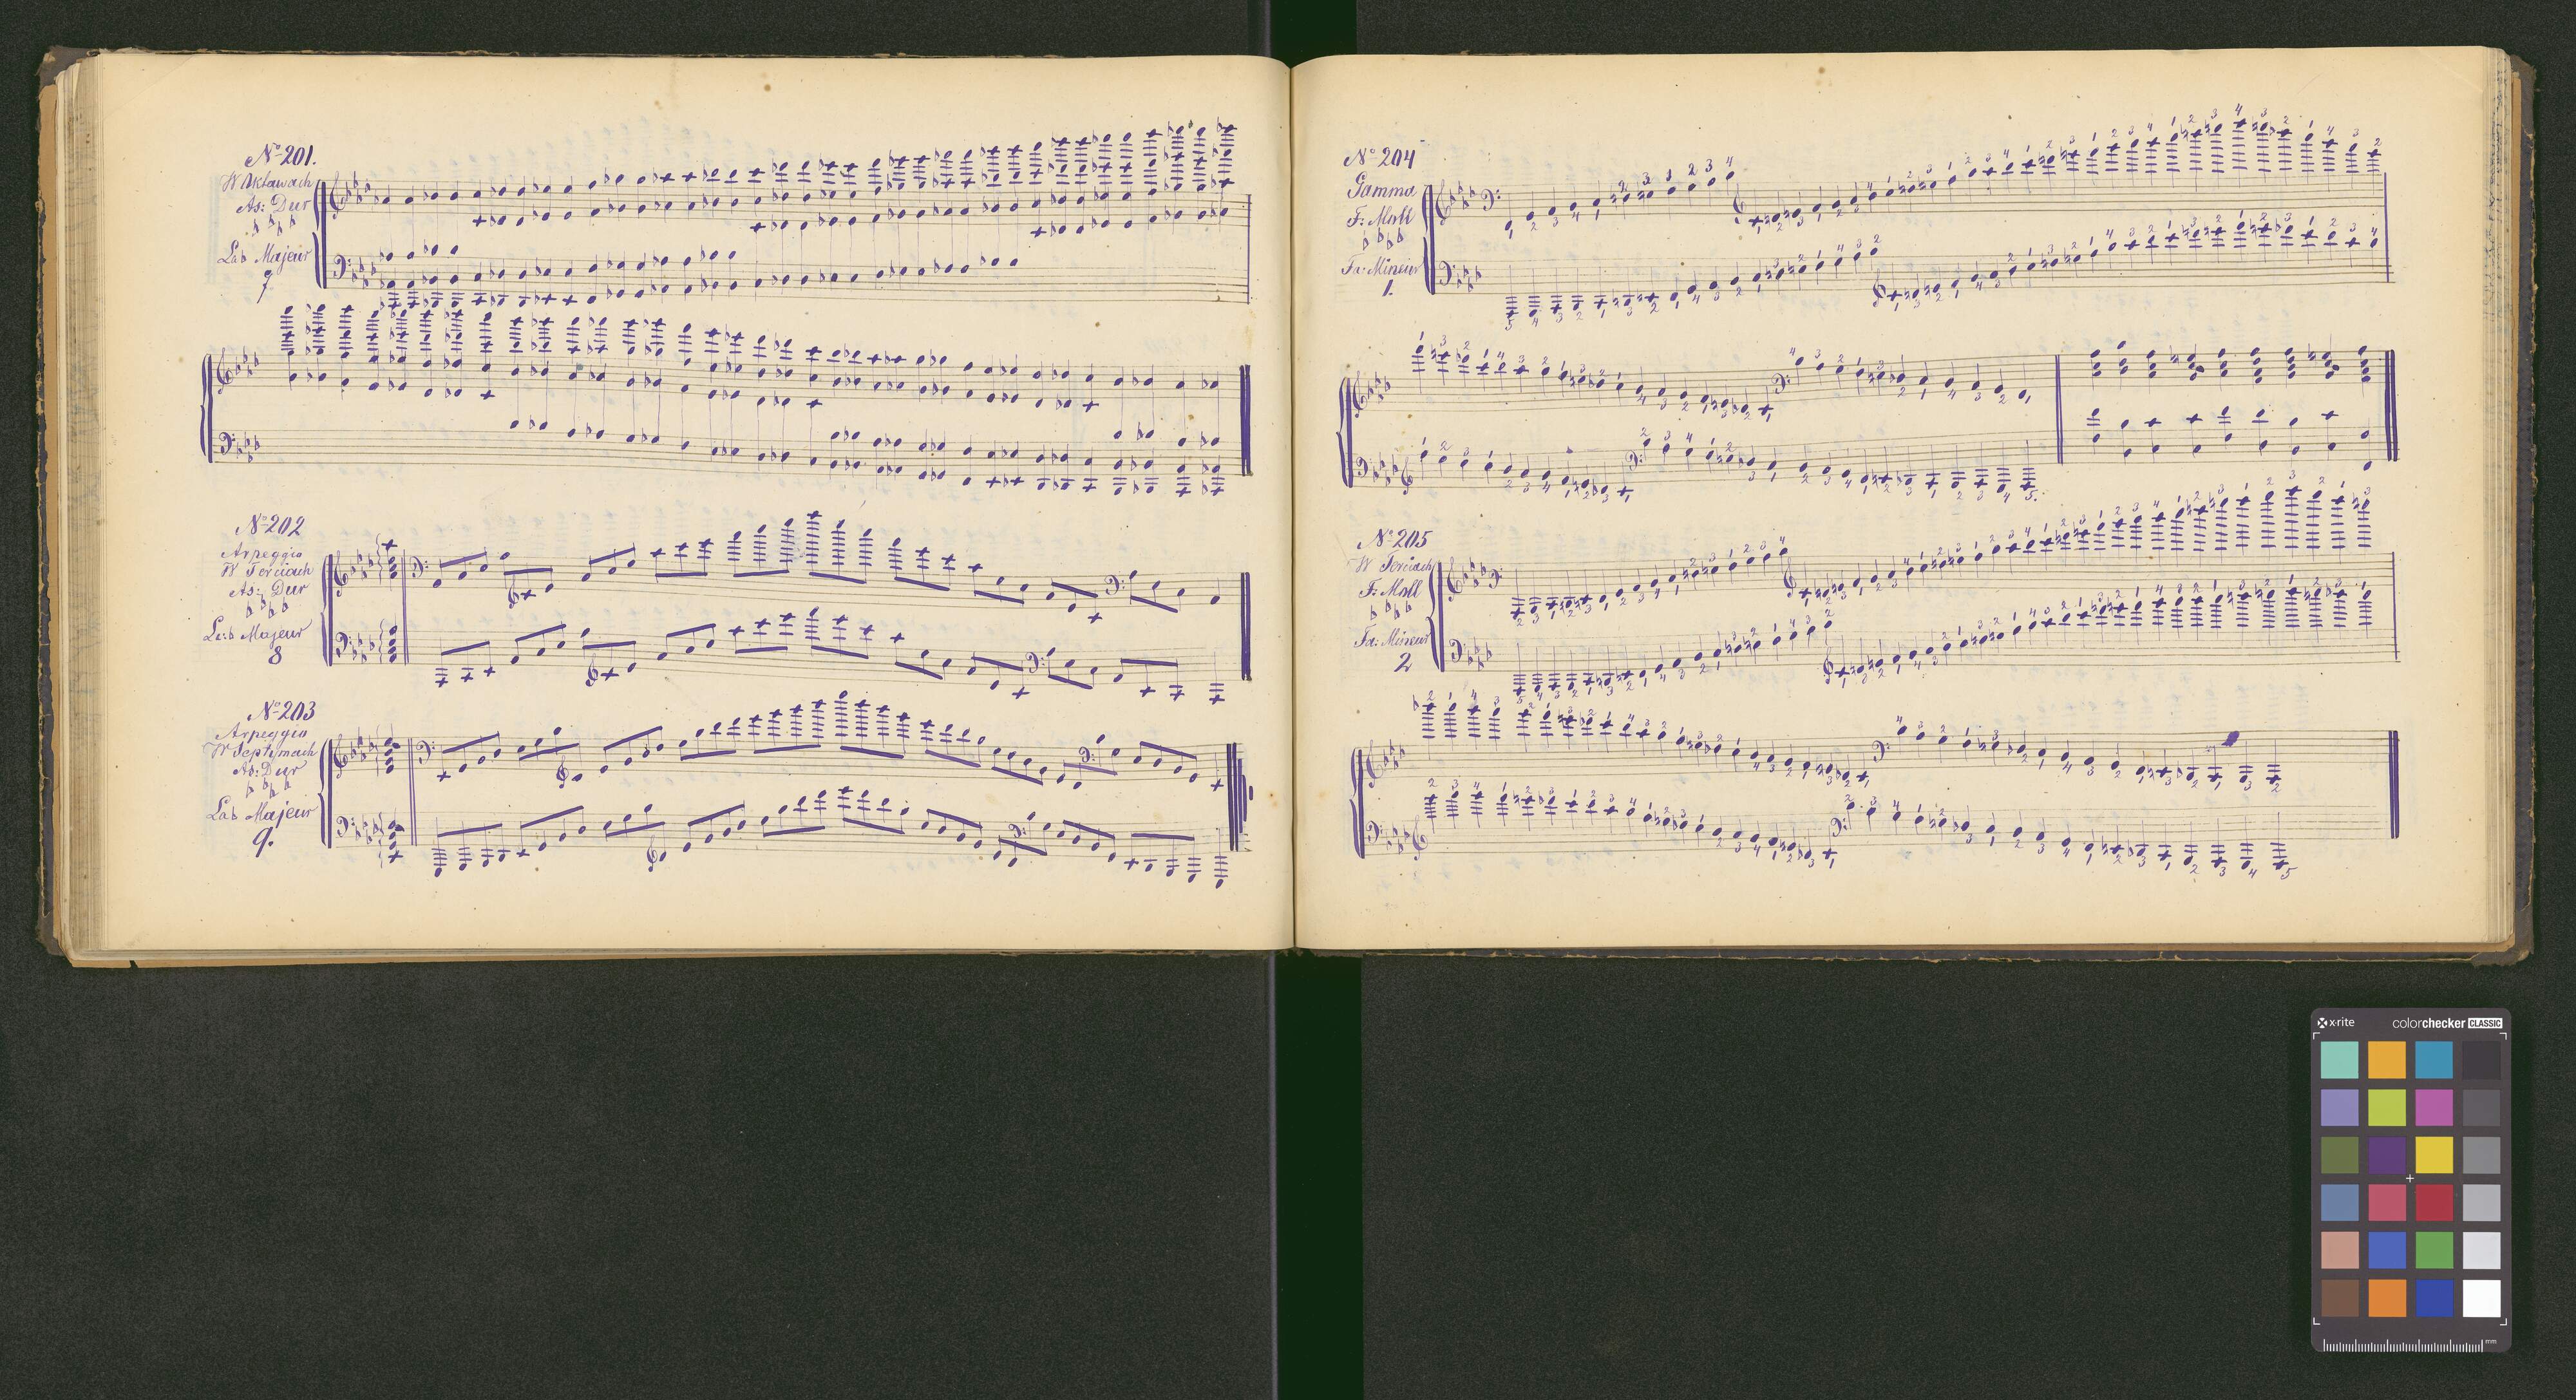 No 201.
W Oktawach
As: Dur
♭ ♭ ♭ ♭
La♭ Majeur
7
No 202
Arpeggio
W Terciach
As: Dur
♭ ♭ ♭ ♭
La:♭ Majeur
8
No 203
Arpeggio
W Septymach
As: Dur
♭ ♭ ♭ ♭
La♭ Majeur
9.
No 204
Gamma
F: Moll
♭ ♭ ♭ ♭
Fa: Mineur
1.
No 205
W Terciach
F: Moll
♭ ♭ ♭ ♭
Fa: Mineur
2
x-rite
colorchecker CLASSIC
mm